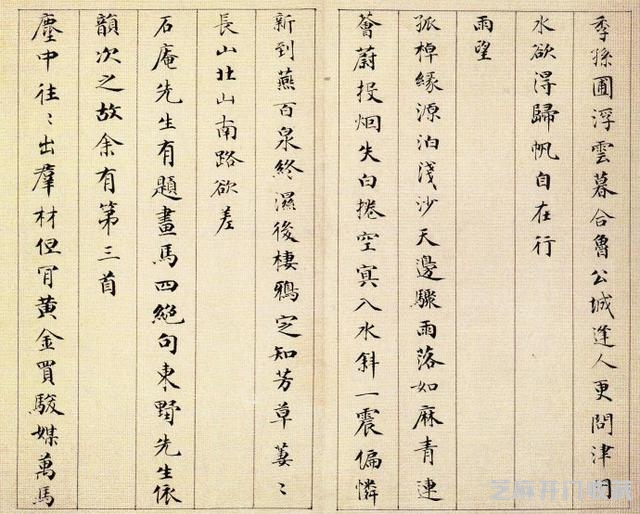 季孫圃浮雲暮合魯公城逢人更問津何
水欲得歸帆自在行
雨望
孤棹緣源泊淺沙天邊驟雨落如麻青連
薈蔚投烟失白捲空冥入水斜一震偏憐
新到燕百泉終濕後棲鴉定知芳草萋〻
長山北山南路欲差
石庵先生有題畫馬四絕句東野先生依
韻次之故余有第三首
塵中往〻出群材但買黃金買駿媒萬馬